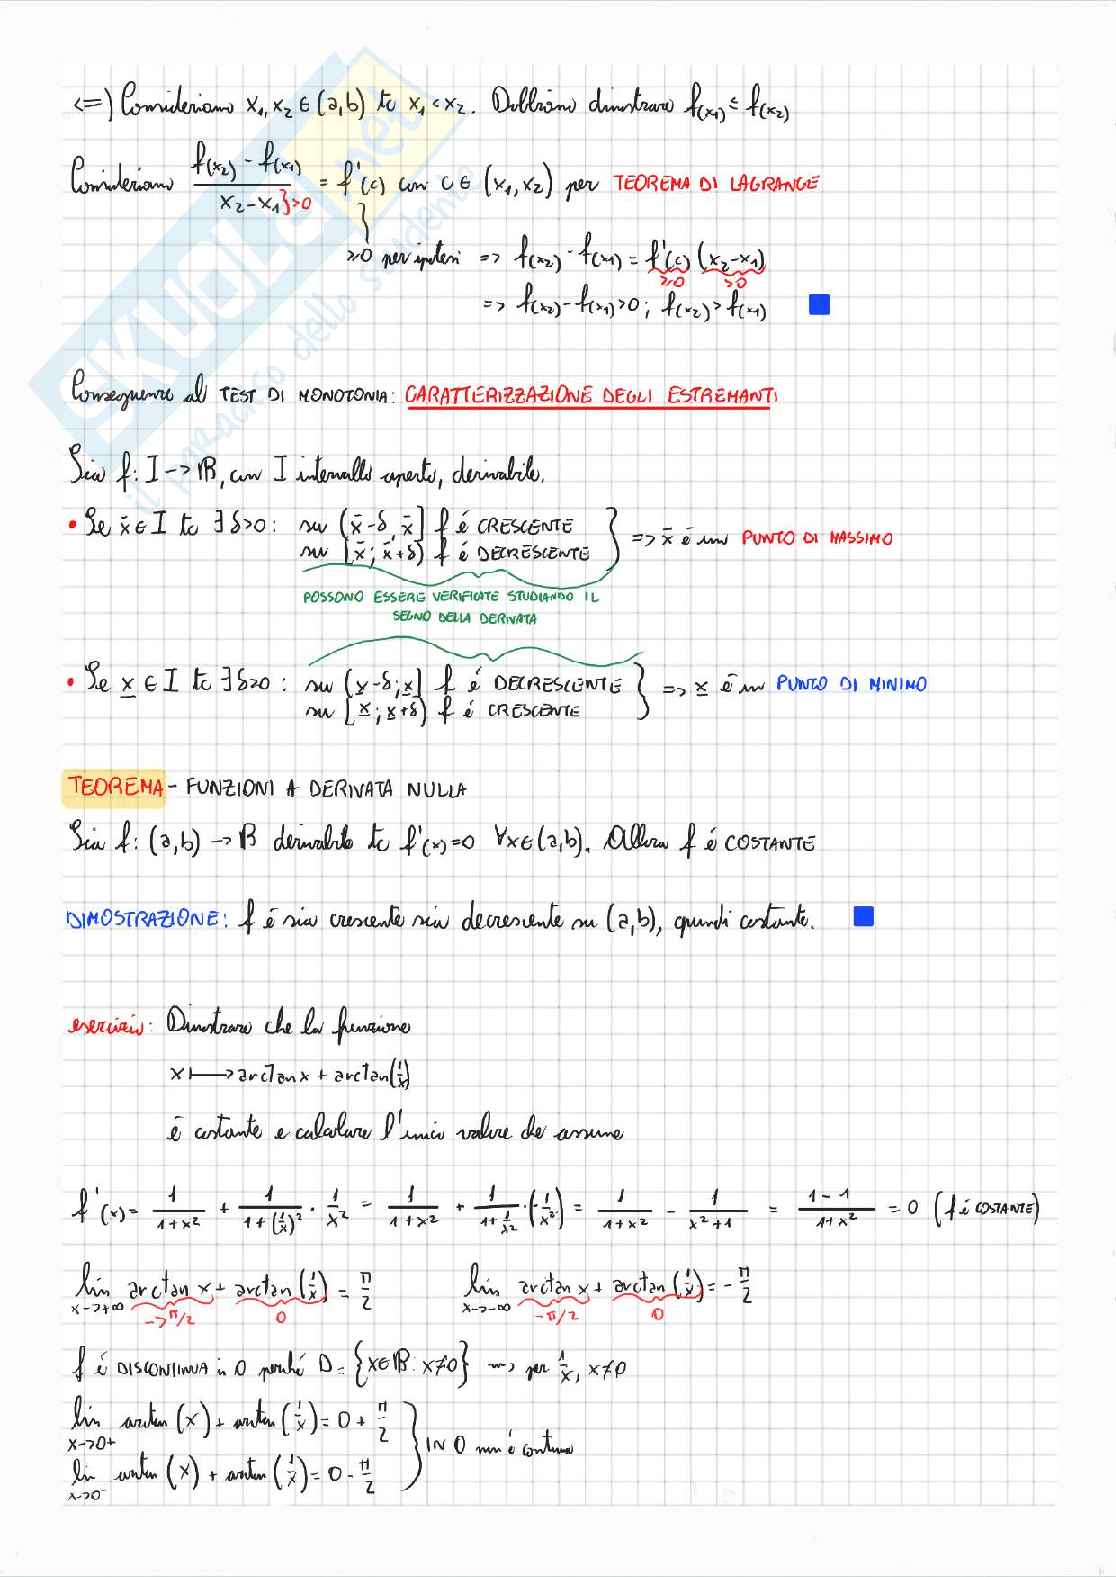 <=) Consideriamo x₁, x₂ ∈ (a,b) tc x₁ < x₂. Dobbiamo dimostrare f(x₁) ≤ f(x₂)
Consideriamo (f(x₂) - f(x₁)) / (x₂ - x₁ }>0) = f'(c) con c ∈ (x₁, x₂) per TEOREMA DI LAGRANGE
≥0 per ipotesi => f(x₂) - f(x₁) = f'(c) (x₂-x₁)
≥0 >0
=> f(x₂) - f(x₁) > 0; f(x₂) > f(x₁)
Conseguenze al TEST DI MONOTONIA: CARATTERIZZAZIONE DEGLI ESTREMANTI
Sia f: I -> ℝ, con I intervallo aperto, derivabile.
• Se x̄ ∈ I tc ∃ δ>0: su (x̄-δ, x̄] f é CRESCENTE
su [x̄; x̄+δ) f é DECRESCENTE } => x̄ é un PUNTO DI MASSIMO
POSSONO ESSERE VERIFICATE STUDIANDO IL
SEGNO DELLA DERIVATA
• Se x̲ ∈ I tc ∃ δ>0: su (x̲-δ; x̲] f é DECRESCENTE
su [x̲; x̲+δ) f é CRESCENTE } => x̲ é un PUNTO DI MINIMO
TEOREMA - FUNZIONI A DERIVATA NULLA
Sia f: (a,b) -> ℝ derivabile tc f'(x)=0 ∀x∈(a,b). Allora f é COSTANTE
DIMOSTRAZIONE: f é sia crescente sia decrescente su (a,b), quindi costante.
esercizio: Dimostrare che la funzione
x ↦ arctan x + arctan(1/x)
é costante e calcolare l'unico valore che assume
f'(x) = 1/(1+x²) + 1/(1+(1/x)²) · 1/x² = 1/(1+x²) + 1/(1+1/x²) · (-1/x²) = 1/(1+x²) - 1/(x²+1) = (1-1)/(1+x²) = 0 (f é COSTANTE)
lim x->+∞ arctan x + arctan(1/x) = π/2 lim x->-∞ arctan x + arctan(1/x) = -π/2
->π/2 0 -π/2 0
f é DISCONTINUA in 0 perché D = {x∈ℝ: x≠0} ~> per 1/x, x≠0
lim x->0+ arctan(x) + arctan(1/x) = 0 + π/2
lim x->0- arctan(x) + arctan(1/x) = 0 - π/2 } IN 0 non é continua
SKUOLA.net
il paradiso dello studente